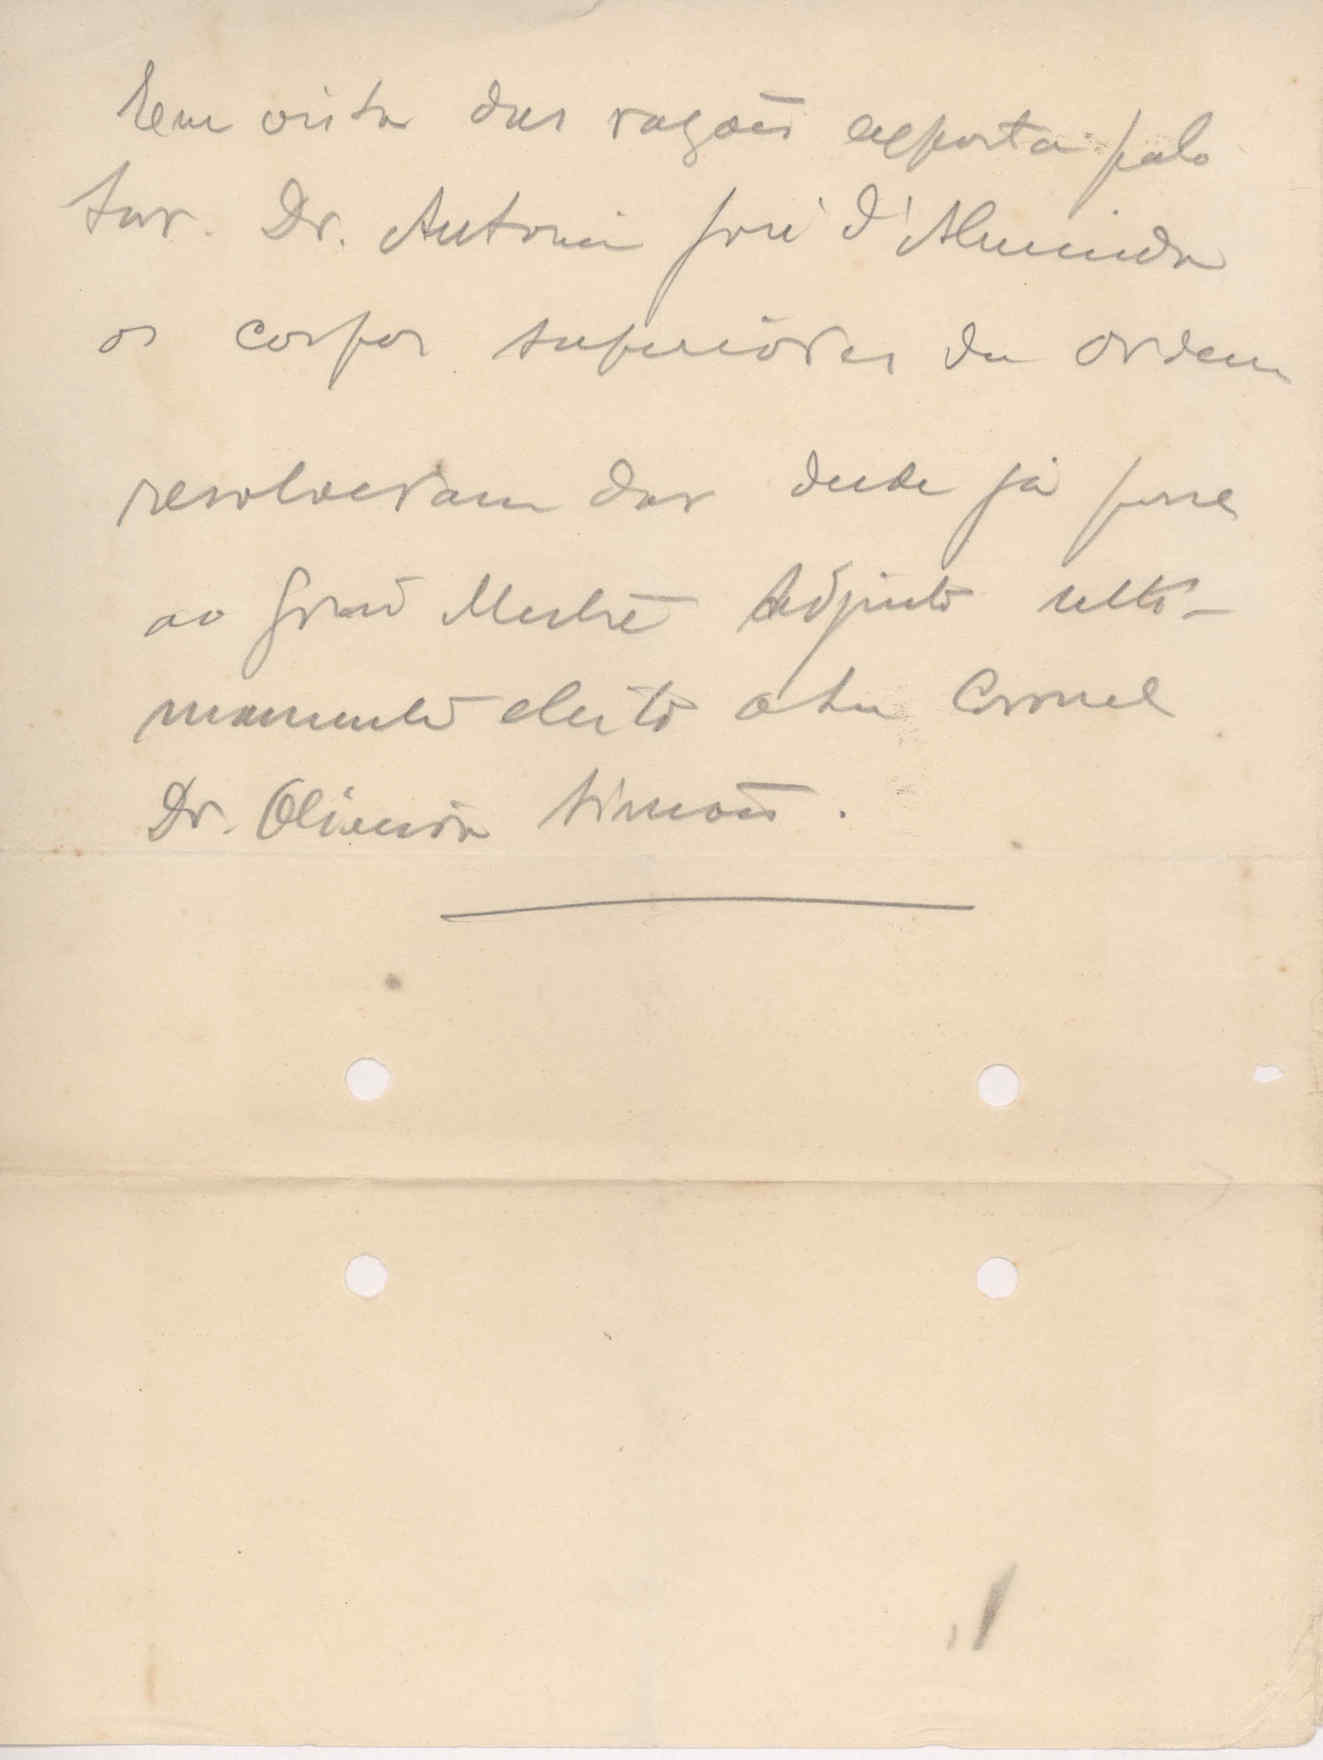 Em vista das razões exposta pelo
Snr. Dr. Antonio José d'Almeida
os corpos superiores da ordem
resolveram dar desde já posse
ao Grão Mestre Adjunto ulti-
mamente eleito o Snr Coronel
Dr. Oliveira Simões.